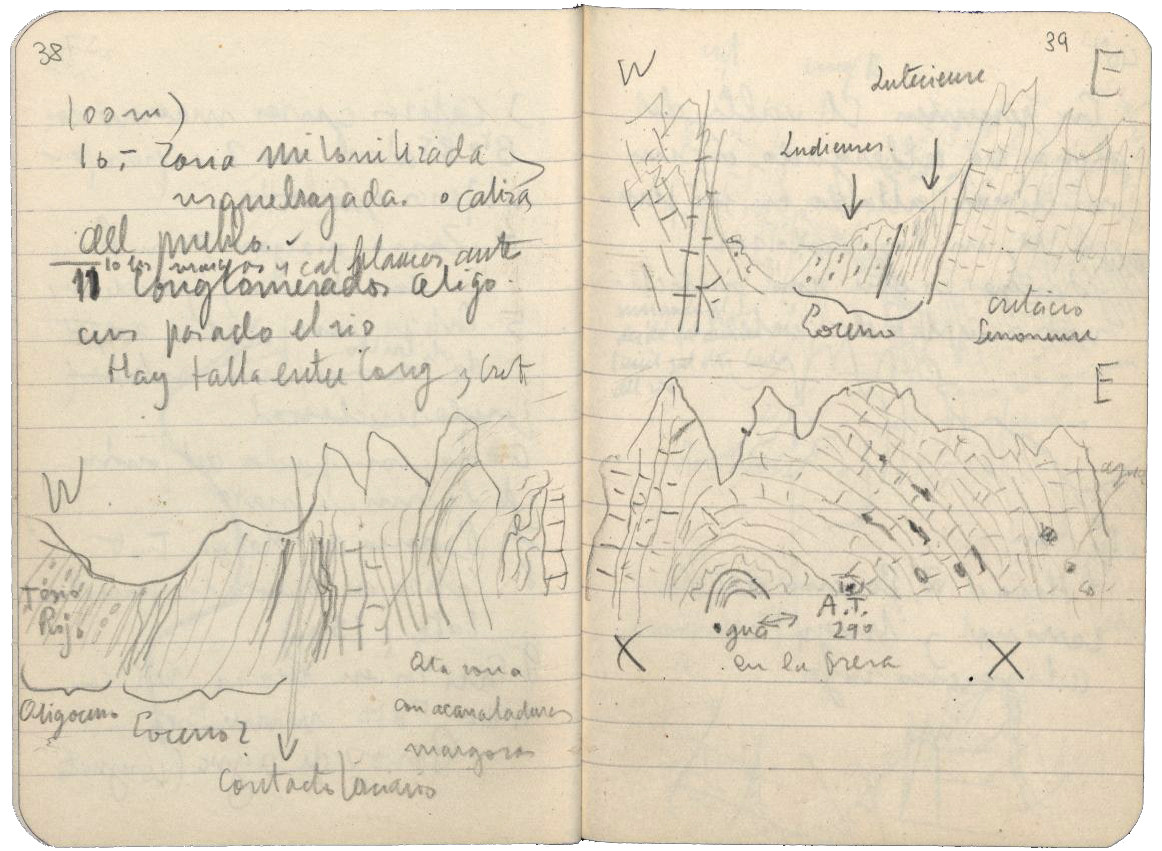 38
100m)
10,- Zona milonitizada
resquebrajada. o caliza
del pueblo.
y cal blancos ante
11 Conglomerados oligo
cens pasado el rio
Hay falla entre Cong y Cret
W
Terio
Rojo
Oligoceno
Eoceno?
Contacto
Ota zona
con acanaladuras
margosas
39
W
E
Luteciense
Ludiense.
Eoceno
cretacio
Senonense
E
agua
A.T.
29º
agua
en la fresa
X
X